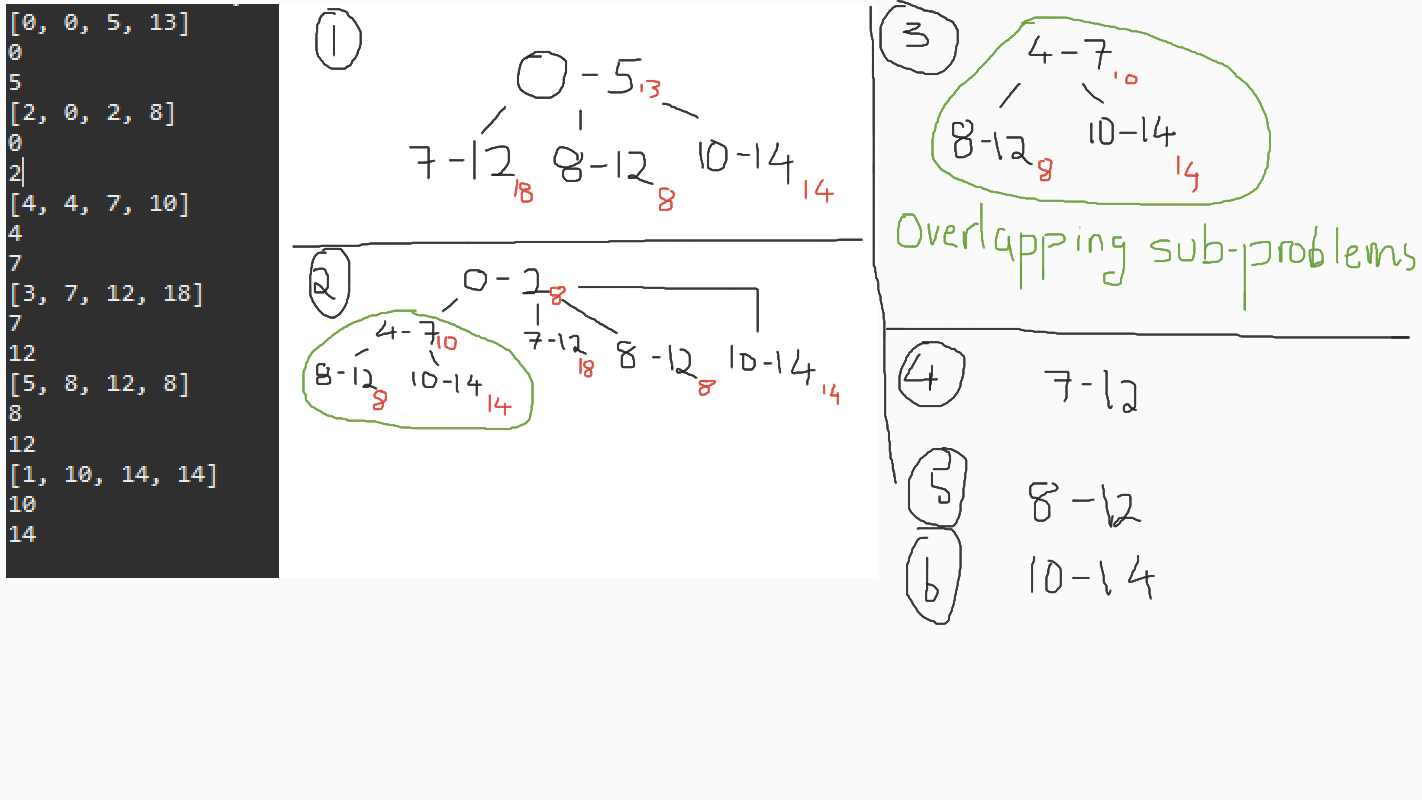 [0, 0, 5, 13]
0
5
[2, 0, 2, 8]
0
2
[4, 4, 7, 10]
4
7
[3, 7, 12, 18]
7
12
[5, 8, 12, 8]
8
12
[1, 10, 14, 14]
10
14
1
0 - 5 13
7 - 12 18 8 - 12 8 10 - 14 14
2
0 - 2 8
4 - 7 10 7 - 12 18 8 - 12 8 10 - 14 14
8 - 12 8 10 - 14 14
3
4 - 7 10
8 - 12 8 10 - 14 14
Overlapping sub-problems
4 7 - 12
5 8 - 12
6 10 - 14